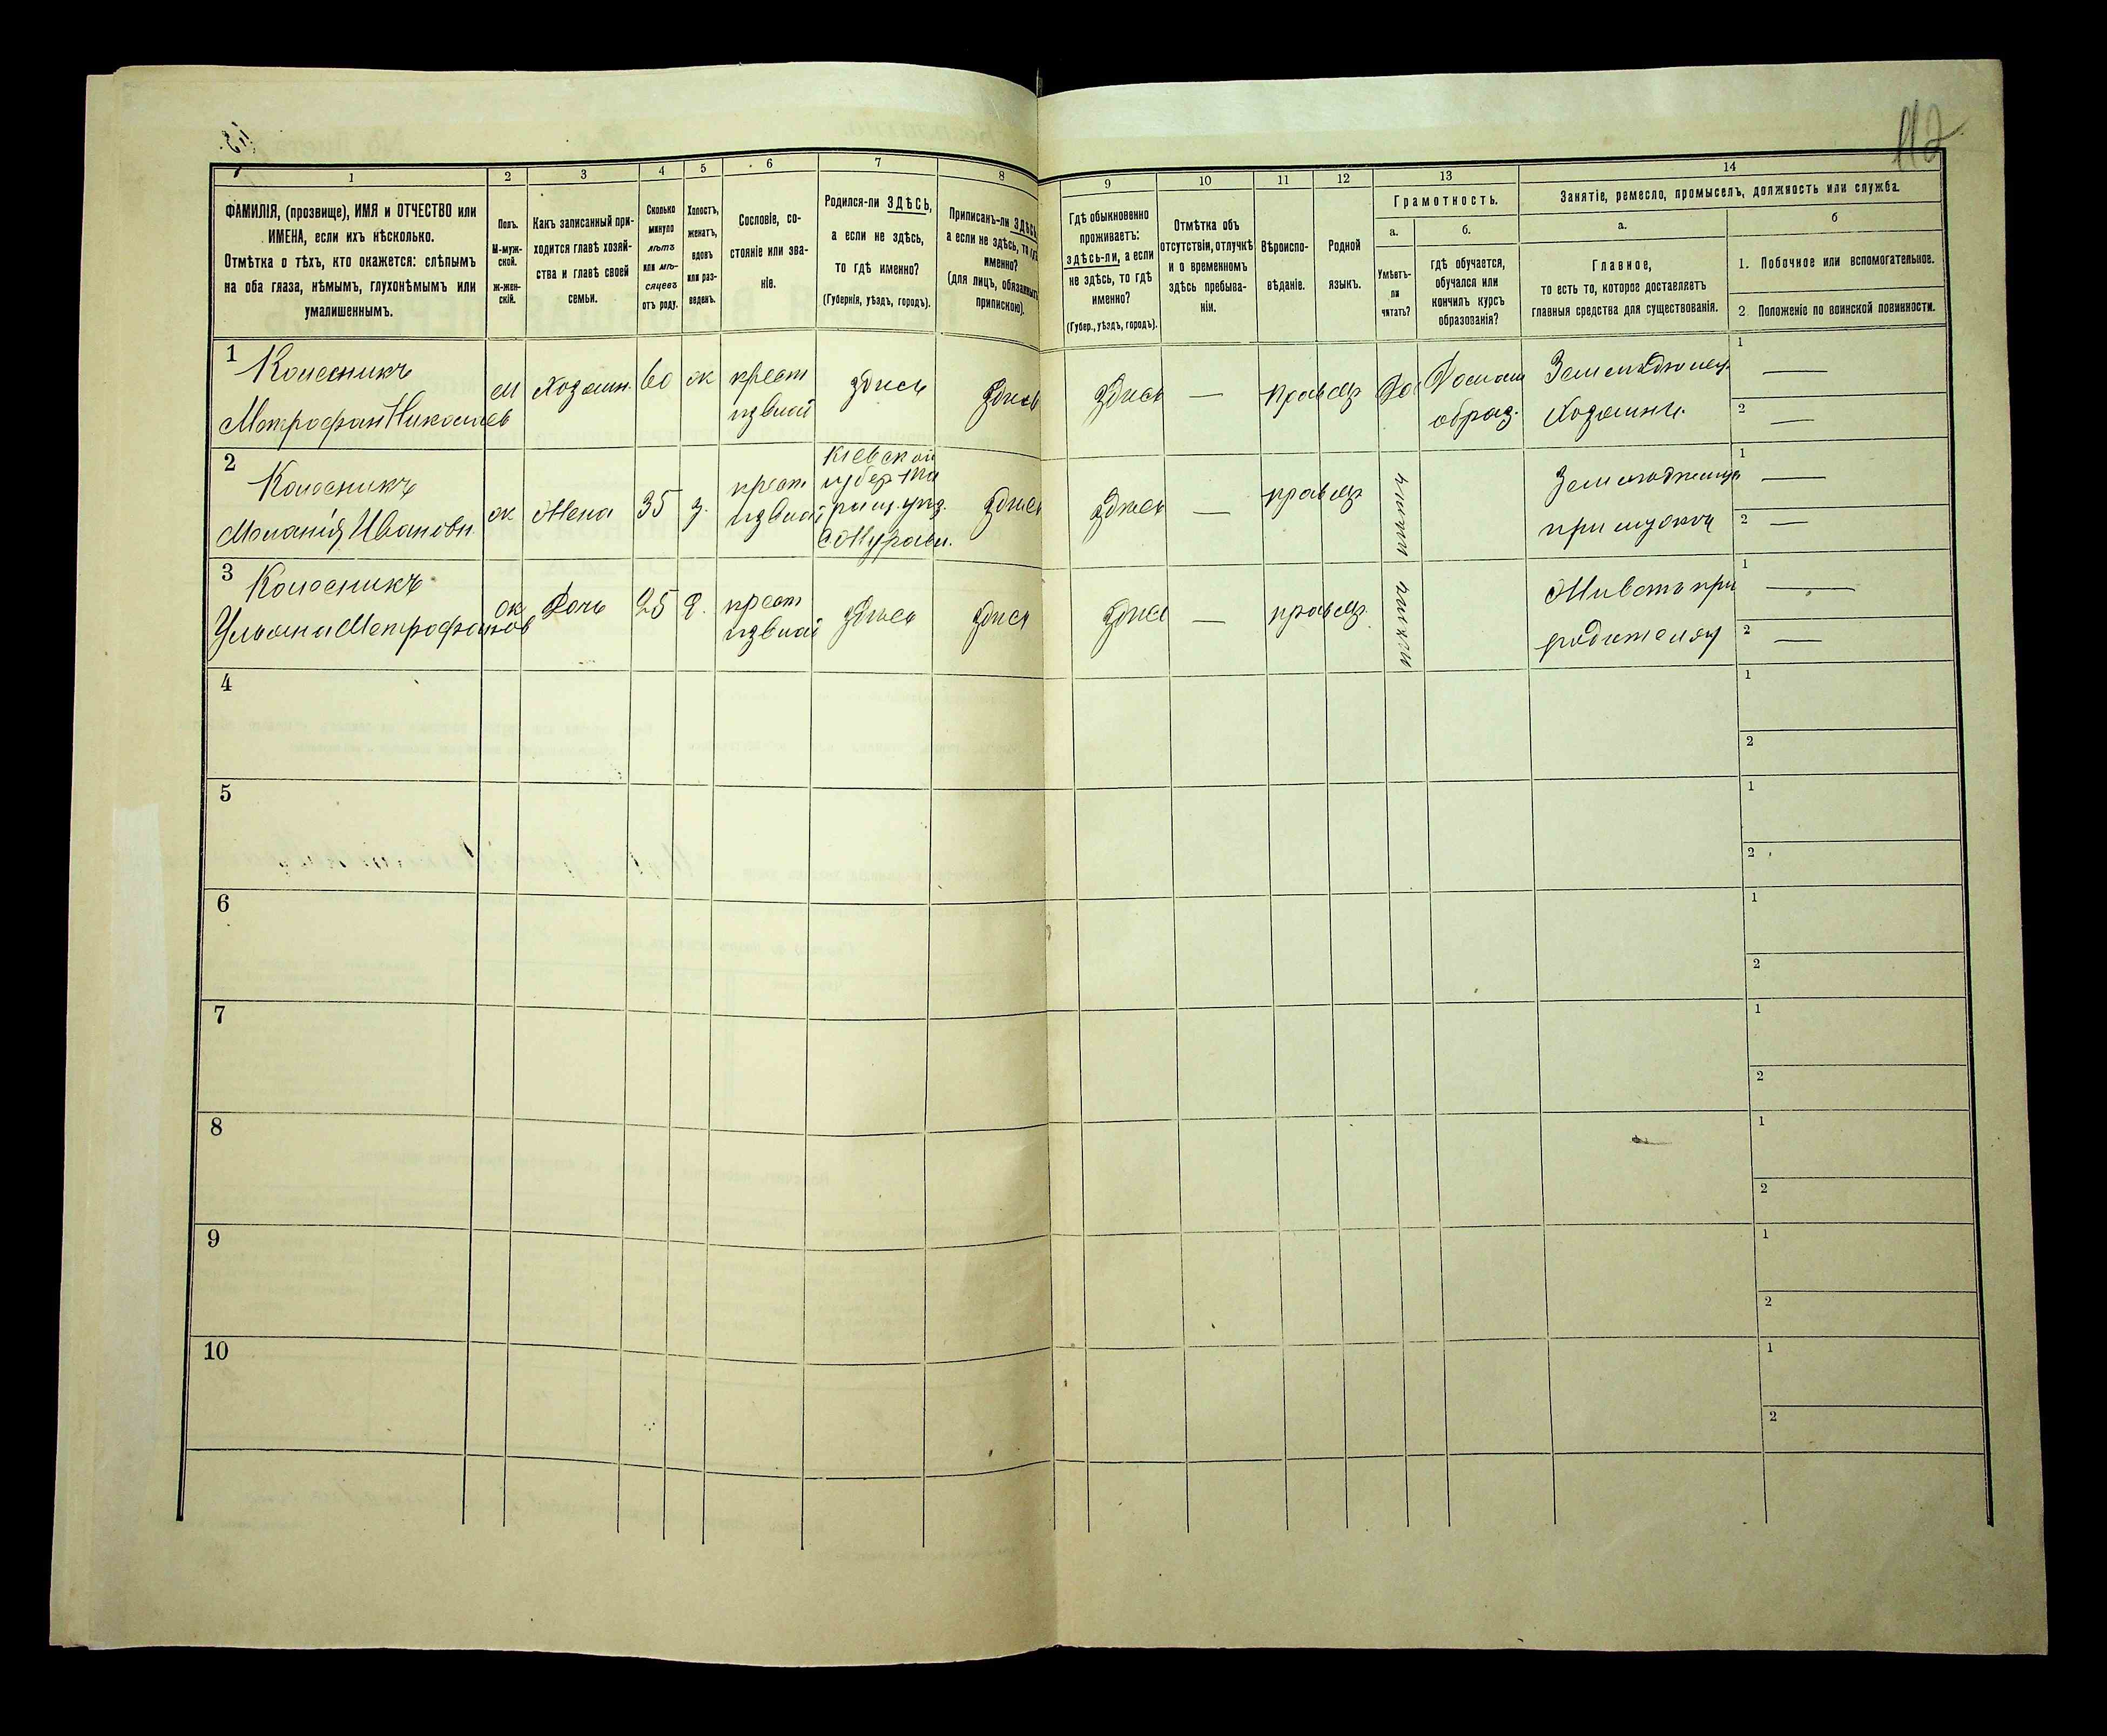 112
1
2
3
4
5
6
7
8
9
10
11
12
13
14
ФАМИЛІЯ, (прозвище), ИМЯ и ОТЧЕСТВО или
ИМЕНА, если ихъ нѣсколько.
Отмѣтка о тѣхъ, кто окажется: слѣпымъ
на оба глаза, нѣмымъ, глухонѣмымъ или
умалишеннымъ.
Полъ.
М-муж-
ской.
ж-жен-
скій.
Какъ записанный при-
ходится главѣ хозяй-
ства и главѣ своей
семьи.
Сколько
минуло
лѣтъ
или мѣ-
сяцевъ
отъ роду.
Холостъ,
женатъ,
вдовъ
или раз-
веденъ.
Сословіе, со-
стояніе или зва-
ніе.
Родился-ли ЗДѢСЬ,
а если не здѣсь,
то гдѣ именно?
(Губернія, уѣздъ, городъ).
Приписанъ-ли ЗДѢСЬ,
а если не здѣсь, то гдѣ
именно?
(для лицъ, обязанныхъ
припискою).
Гдѣ обыкновенно
проживаетъ:
здѣсь-ли, а если
не здѣсь, то гдѣ
именно?
(Губер., уѣздъ, городъ).
Отмѣтка объ
отсутствіи, отлучкѣ
и о временномъ
здѣсь пребыва-
ніи.
Вѣроиспо-
вѣданіе.
Родной
языкъ.
Грамотность.
а.
Умѣетъ-
ли
читать?
б.
гдѣ обучается,
обучался или
кончилъ курсъ
образованія?
Занятіе, ремесло, промыселъ, должность или служба.
а.
Главное,
то есть то, которое доставляетъ
главныя средства для существованія.
б
1. Побочное или вспомогательное.
2. Положеніе по воинской повинности.
1
Колесникъ
Митрофан Николаев
м
Хозяин.
60
ж
крест
из влад
здись
здись
здись
—
правосл
Да
Домаш
образ.
Земледилец
Хозяинъ.
1 —
2 —
2
Колесникъ
Маланія Ивановн
ж
Жена
35
з.
крест
из влад
Кіевской
губер
с Мурави.
здись
здись
—
правосл
земледилец
при мужои
1 —
2 —
3
Колесникъ
Ульяна Митрофанов
ж
Дочь
25
д.
крест
из влад
здись
здись
здись
—
правосл
Живетъ при
родителях
1 —
2 —
4
1
2
5
1
2
6
1
2
7
1
2
8
1
2
9
1
2
10
1
2